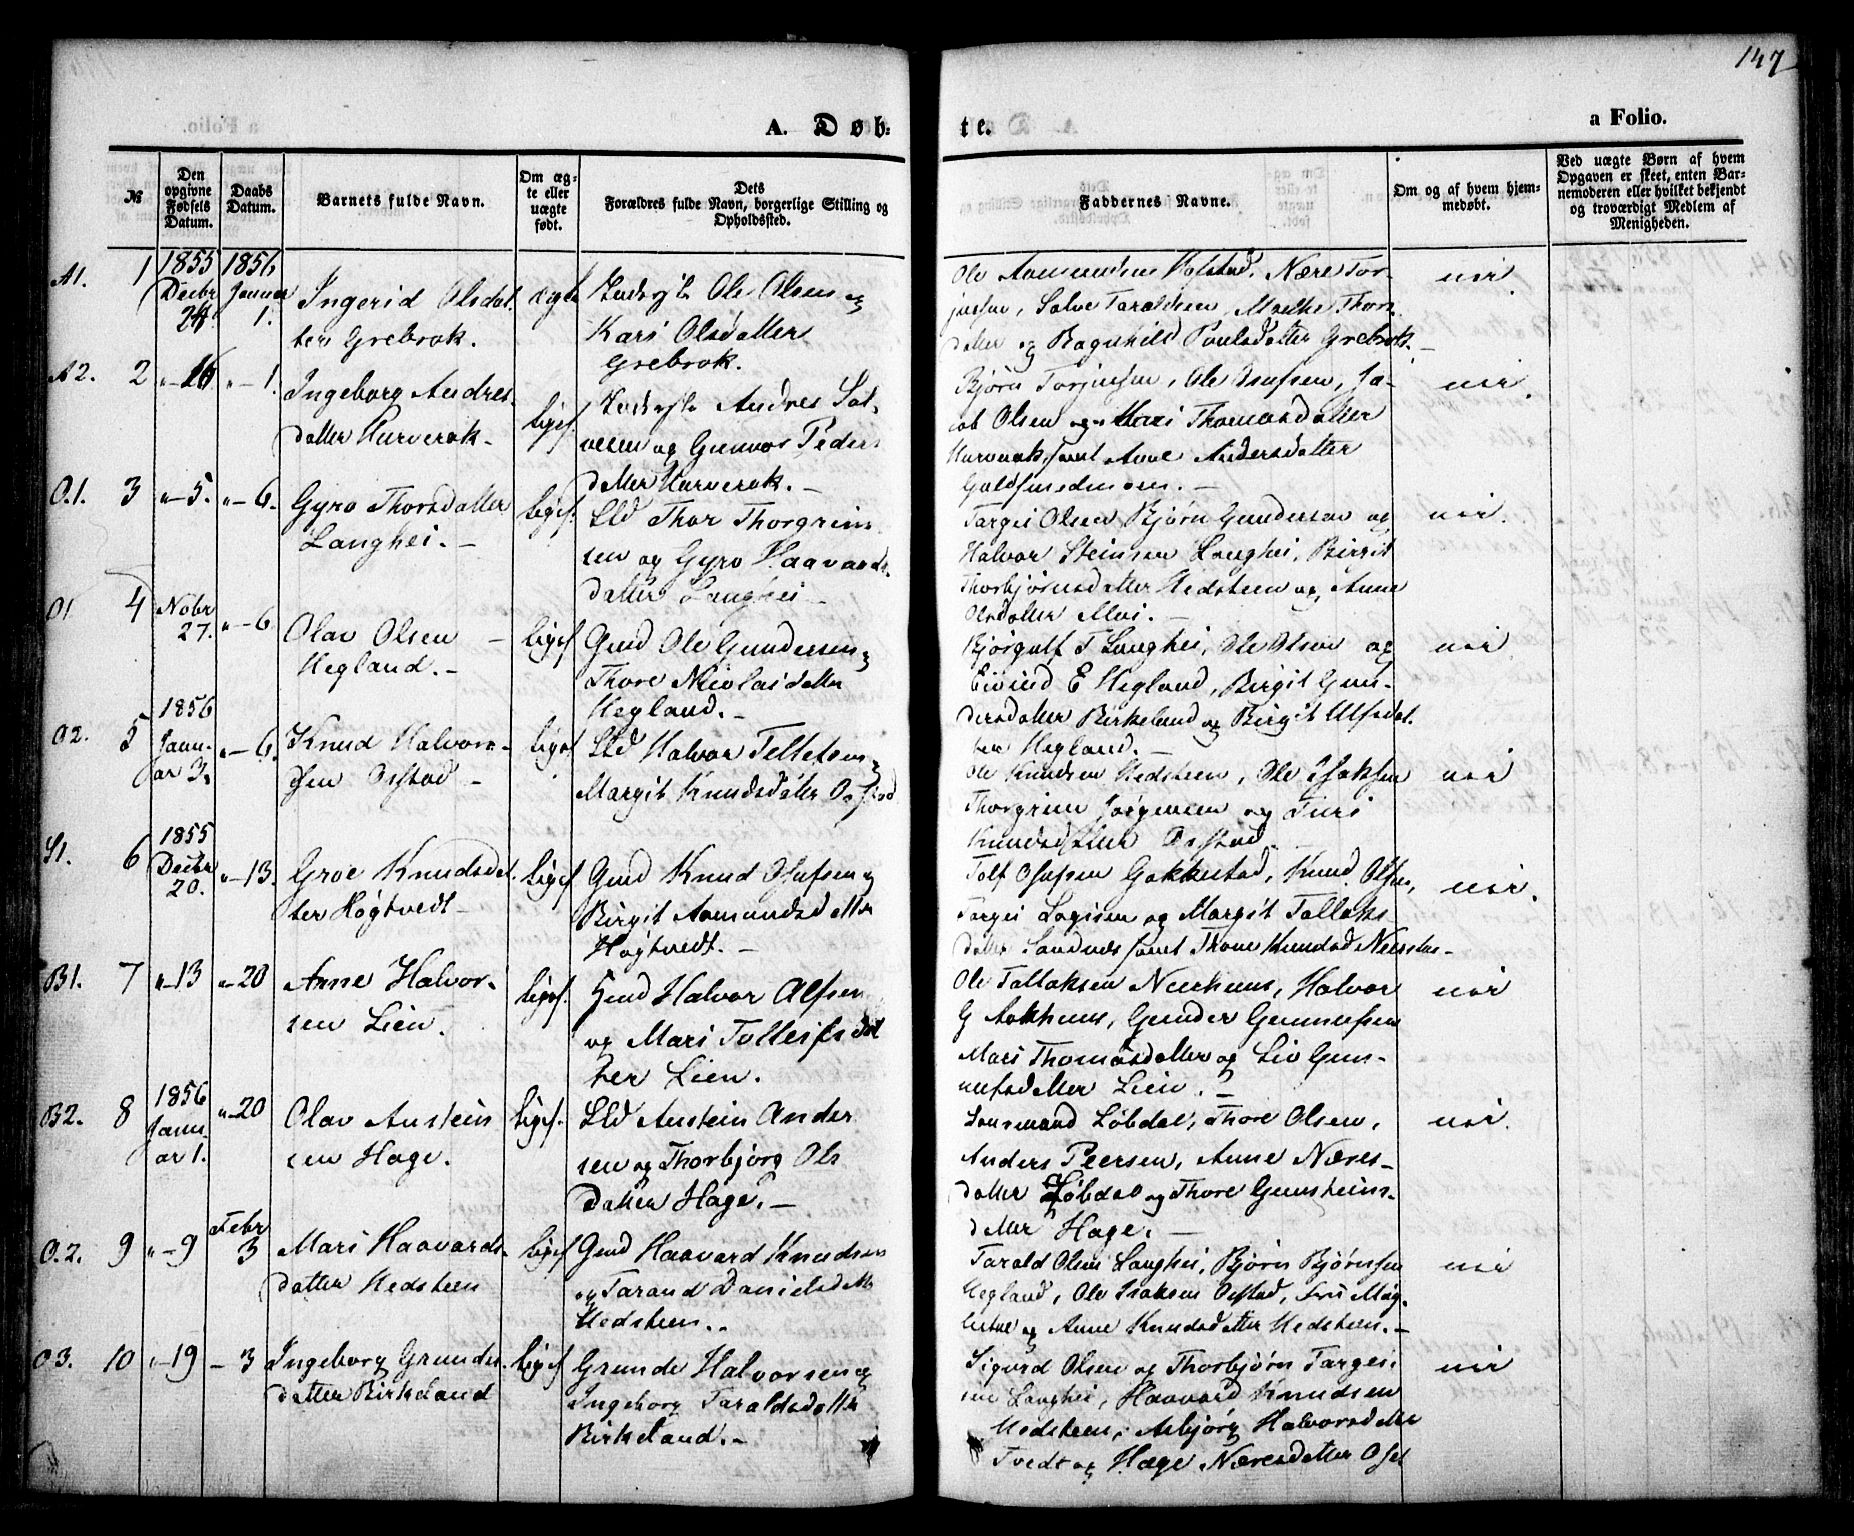 147
A. Døb-
te.
a Folio.
№
Den opgivne Fødsels Datum.
Daabs Datum.
Barnets fulde Navn.
Om ægte eller uægte født.
Dets Forældres fulde Navn, borgerlige Stilling og Opholdssted.
Faddernes Navne.
Om og af hvem hjemmedøbt.
Ved uægte Børn af hvem Opgaven er skeet, enten Barnemoderen eller hvilket bekjendt og troværdigt Medlem af Menigheden.
A1. 1 1855 Decbr 24. 1856 Januar 1.
Ingerid Olsdat-
ter Grebrok.
ægte
Ole Olsen og
Kari Olsdatter
Grebrok.
Ole Aamundsen Nære Tor-
jussen, Salve Taraldsen, Thors-
datter og Ragnhild Paulsdatter Grebrok.
nei.
A2. 2 "-16 "-1.
Ingeborg Andres-
datter Hurverok-
liges.
Andres Sal-
vesen og Gunvor Peders
datter Hurverok.-
Bjørn Torjussen, Ole Osufsen, Ja-
cob Olsen og Mari Thomasdatter
Hurverok, samt Anne Andersdatter
nei.
O.1. 3 "-5. "-6.
Gyro Thorsdatter
Langhei.-
ligef.
Lld Thor Thorgrim
sen og Gyro Haavards-
datter Langhei
Targei Olsen Bjørn Gundersen og
Halvor Steinsen Langhei, Birgit
Thorbjørnsdatter Hedsteen og Anne
Olsdatter
nei.
O1 4 Nobr 27. "-6
Olav Olsen
Hegland.-
ligef
Gmd Ole Gundersen og
Thore Nicolaisdatter
Hegland.-
Bjørgulf T Langhei, Ole Olsen og
Eivind E Hegland, Birgit Gun-
dersdatter Birkeland og Birgit Ulfsdat-
ter Hegland.-
nei
O2. 5 1856 Janu- ar 3. "-6.
Knud Halvor-
sen Ofstad-
ligef
Lld Halvor Tellefsen og
Margit Knudsdatter Ofstad
Ole Knudsen Hedsteen, Ole Isaksen
Thorgrim Jørgensen og Turi
Knudsdatter Ofstad.
nei
S1. 6 1855 Decbr 20. "-13.
Groe Knudsdat-
ter Høgtvedt-
ligef
Gmd Knud Osufsen og
Birgit Aamundsdatter
Høgtvedt.-
Tolf Osufsen Gakkestad, Knud Olsen,
Targei og Margit Tallaks
datter Sandnæs samt Thone Knudsd
nei.
B1. 7 "-13 "-20
Anne Halvor-
sen Lien.
ligef.
Gmd Halvor Alfsen
og Mari Tolleifsdat
ter Lien.
Ole Tallaksen Halvor
G Aakhuus, Gunder Gunnufsen
Mari Thomasdatter og Liv Gun-
nufsdatter Lien.-
nei
B2. 8 1856 Janu- ar 1. "-20
Olav Austein
sen Hage.
ligef.
Lld Austein Ander
sen og Thorbjørg Ols
datter Hage.-
Lensmand Løbdal, Thore Olsen,
Anders Peersen, Anne Næres-
datter Løbdal og Thore Gunsteins-
datter Hage.
nei.
O.2. 9 "-9 Febr 3
Mari Haavards-
datter Hedsteen
ligef
Gmd Haavard Knudsen
og Tarand Danielsdatter
Hedsteen.
Tarald Olsen Langhei, Bjørn Bjørnsen
Hegland, Ole Isaksen Ofstad,
og Anne Knudsdatter Hedsteen.-
nei
O3. 10 "-19 -3
Ingeborg Grundes-
datter Birkeland
ligef
Grunde Halvorsen og
Ingeborg Taraldsdatter
Birkeland.-
Sigurd Olsen og Thorbjørn Targei-
sen Langhei, Haavard Knudsen
Hedsteen, Asbjørg Halvorsdatter
Tvedt og Hæge Næresdatter
nei